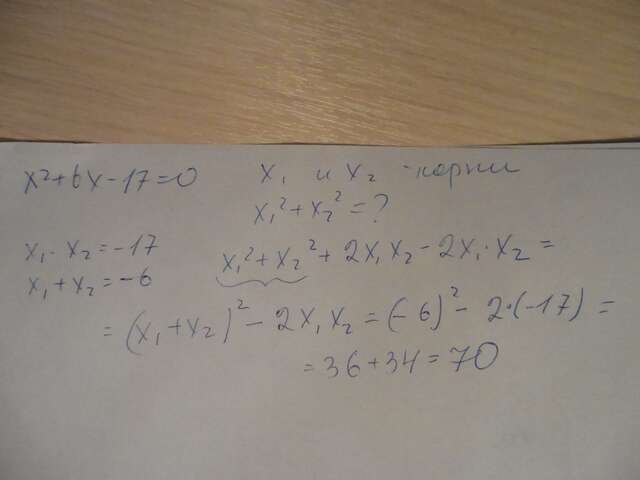 x²+6x-17=0
x₁ и x₂ - корни
x₁²+x₂²=?
x₁·x₂=-17
x₁+x₂=-6
x₁²+x₂²+2x₁x₂-2x₁·x₂=
=(x₁+x₂)²-2x₁x₂=(-6)²-2·(-17)=
=36+34=70